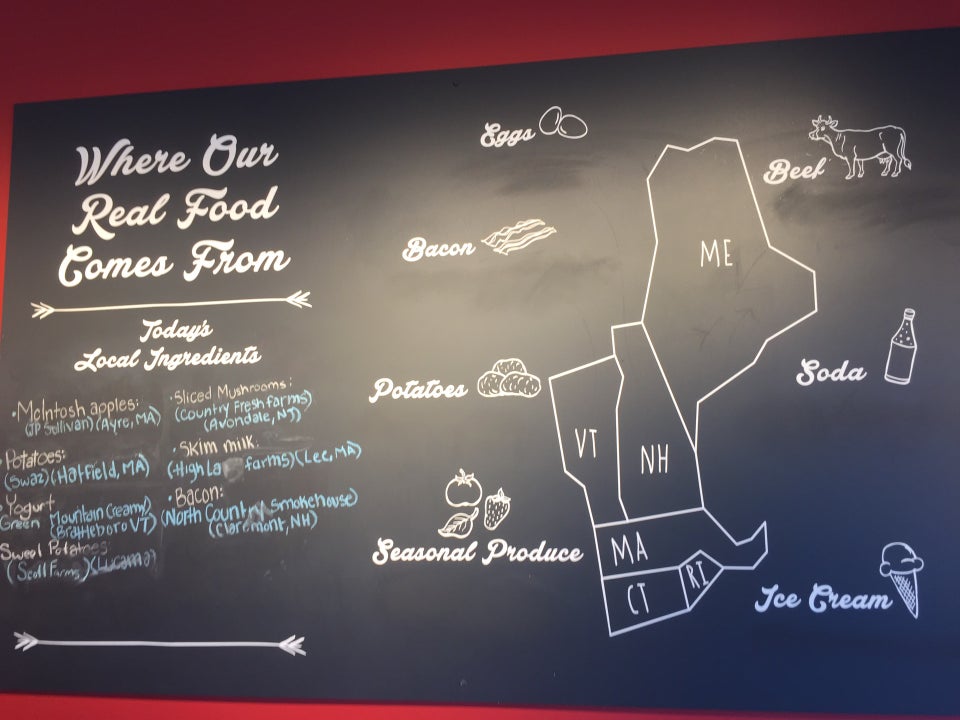 Where Our
Real Food
Comes From
Today's
Local Ingredients
·McIntosh apples:
(JP Sullivan) (Ayre, MA)
Potatoes:
(Swaz) (Hatfield, MA)
Yogurt
Green Mountain Creamy)
(Brattleboro VT)
Sweet Potatoes
(Scott Farms)
·Sliced Mushrooms:
(Country Fresh farms)
(Avondale, NJ)
·Skim milk:
farms) (Lee, MA)
·Bacon:
(North Country Smokehouse)
(Claremont, NH)
Eggs
Bacon
Potatoes
Seasonal Produce
Beef
Soda
Ice Cream
ME
VT
NH
MA
CT
RI